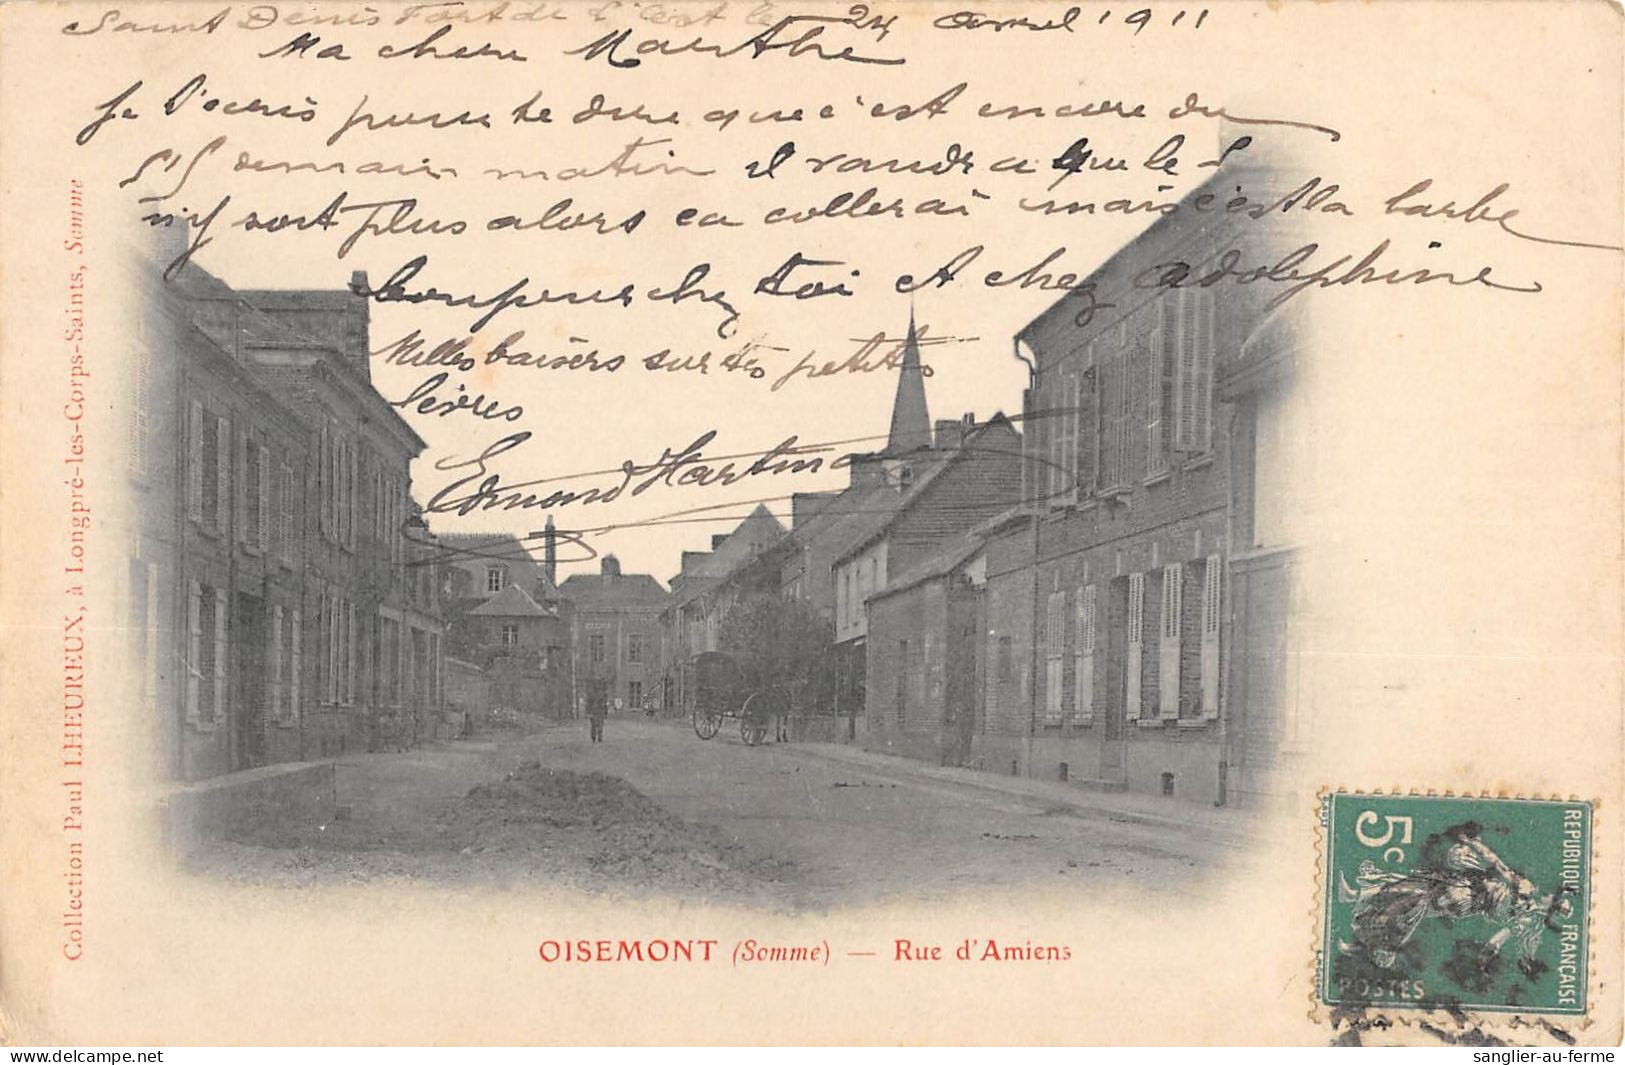 Saint Denis Fort de l'est le 24 avril 1911
Ma chere Marthe
Je t'ecris pour te dire que c'est encore du
demain matin il vaudra que le
n'y sort plus alors ca collerai mais c'est la barbe
chez toi et chez adolephine
Milles baisers sur tes petites
lèvres
Edmond Hartman
Collection Paul LHEUREUX, à Longpré-les-Corps-Saints, Somme
OISEMONT (Somme) — Rue d'Amiens
5c
REPUBLIQUE FRANÇAISE
POSTES
sanglier-au-ferme